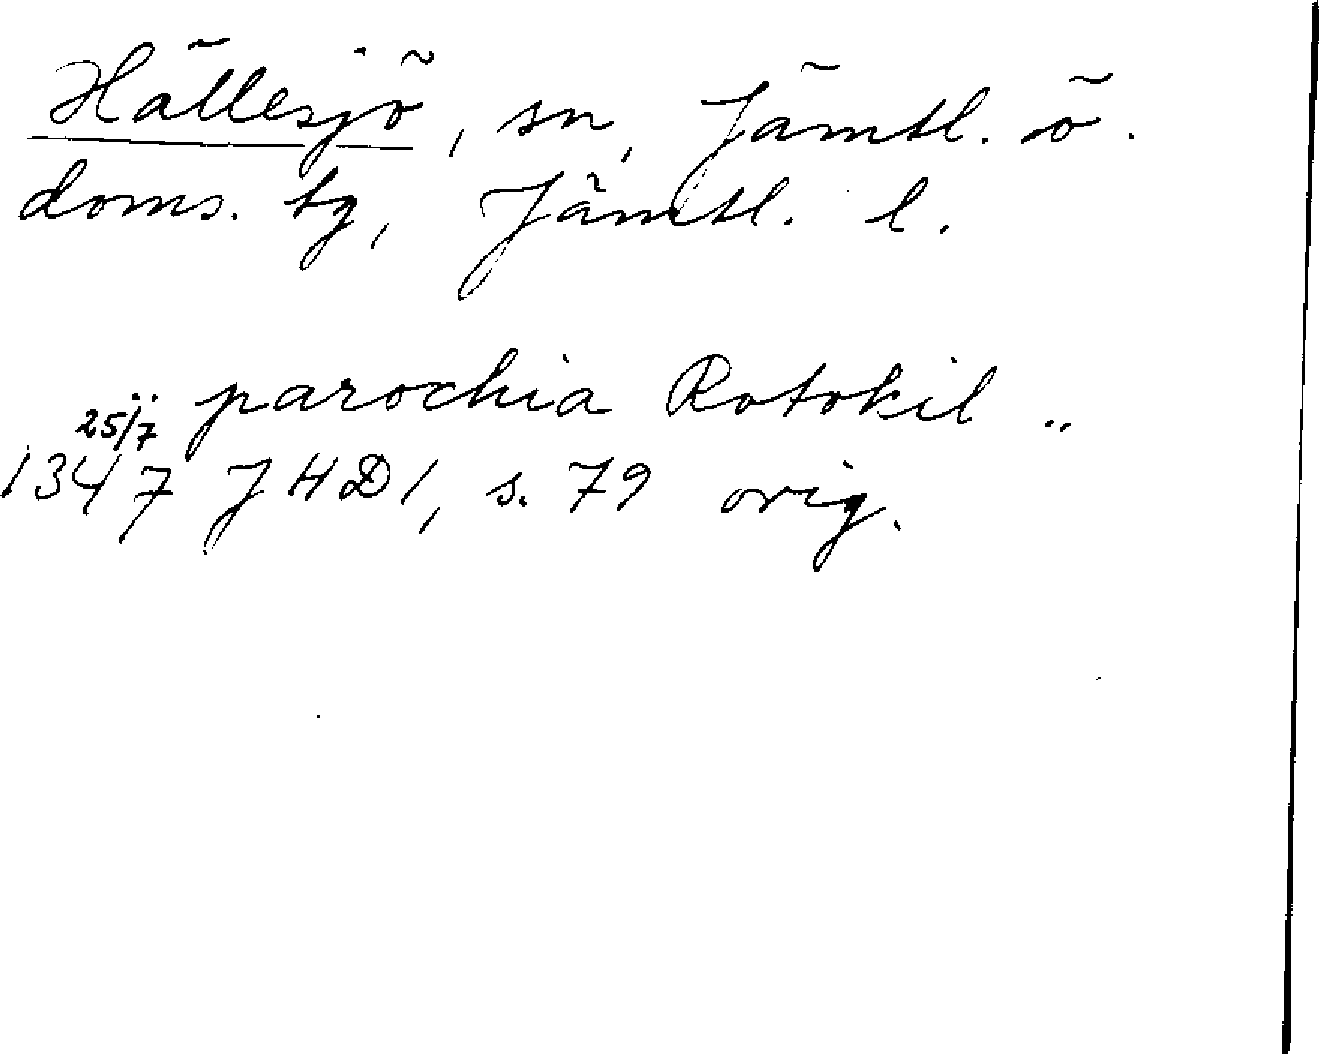 Hällesjö, sn, Jämtl. ö.
doms. tg, Jämtl. l.
parochia Rotokil ..
25/7
1347 JHD1, s. 79 orig.